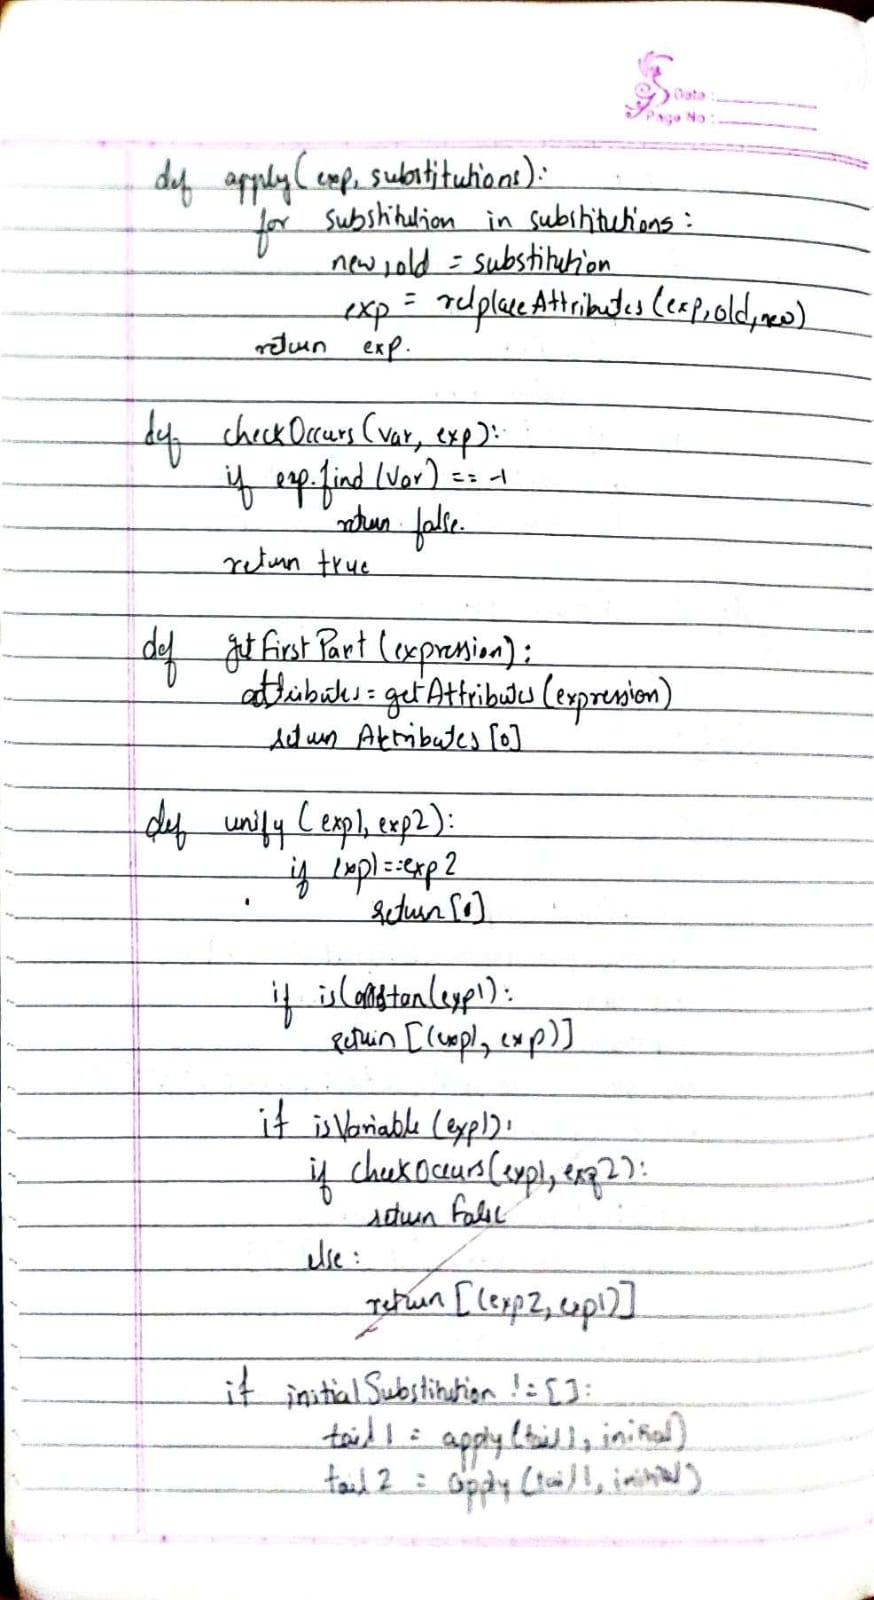 Date :
Page No :
def apply(exp, substitutions):
for substitution in substitutions:
new, old = substitution
exp = relplaceAttributes(exp, old, new)
return exp.
def checkOccurs(var, exp):
if exp.find(Var) == -1
return false.
return true
def getFirstPart(expression):
attributes = getAttributes(expression)
return Attributes[0]
def unify(exp1, exp2):
if exp1 == exp2
return []
if is(exp1):
return [(exp1, exp)]
if isVariable(exp1):
if checkOccurs(exp1, exp2):
return False
else:
return [(exp2, exp1)]
if initialSubstitution != []:
tail1 = apply(tail1, initial)
tail2 = apply(tail1, initial)